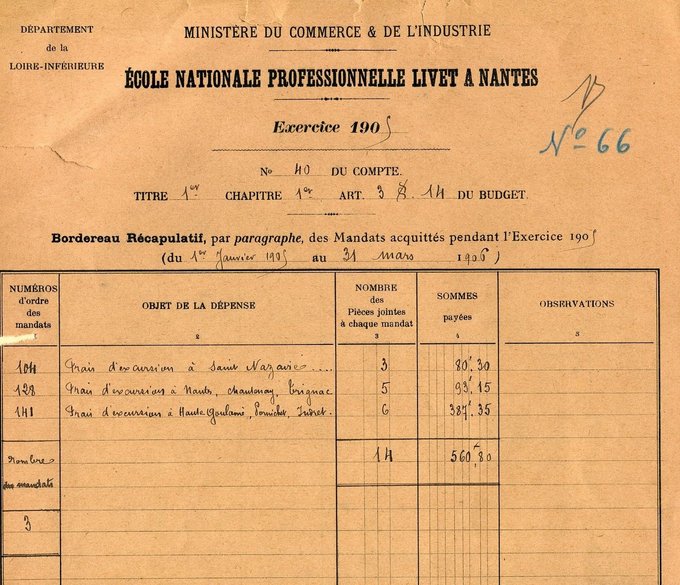 DÉPARTEMENT
de la
LOIRE-INFÉRIEURE
MINISTÈRE DU COMMERCE & DE L'INDUSTRIE
ÉCOLE NATIONALE PROFESSIONNELLE LIVET A NANTES
Exercice 1905
No 66
No 40 DU COMPTE.
TITRE 1er CHAPITRE 1er ART. 3 § 14 DU BUDGET.
Bordereau Récapulatif, par paragraphe, des Mandats acquittés pendant l'Exercice 1905
(du 1er Janvier 1905 au 31 mars 1906)
NUMÉROS
d'ordre
des
mandats
1
OBJET DE LA DÉPENSE
2
NOMBRE
des
Pièces jointes
à chaque mandat
3
SOMMES
payées
4
OBSERVATIONS
5
104 Frais d'excursion à Saint Nazaire .... 3 80f,30
128 Frais d'excursion à Nantes, Chantenay, Trignac 5 93f,15
141 Frais d'excursion à Haute Goulaine, Pornichet, Indret. 6 387f,35
Nombre 14 560f,80
des mandats
3